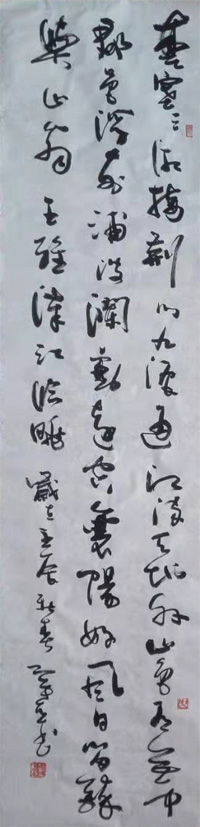 楚塞三湘接荊門九派通江流天地外山色有無中
郡邑浮前浦波瀾動遠空襄陽好風日留醉
與山翁 王維漢江臨眺 歲在壬辰新春 書